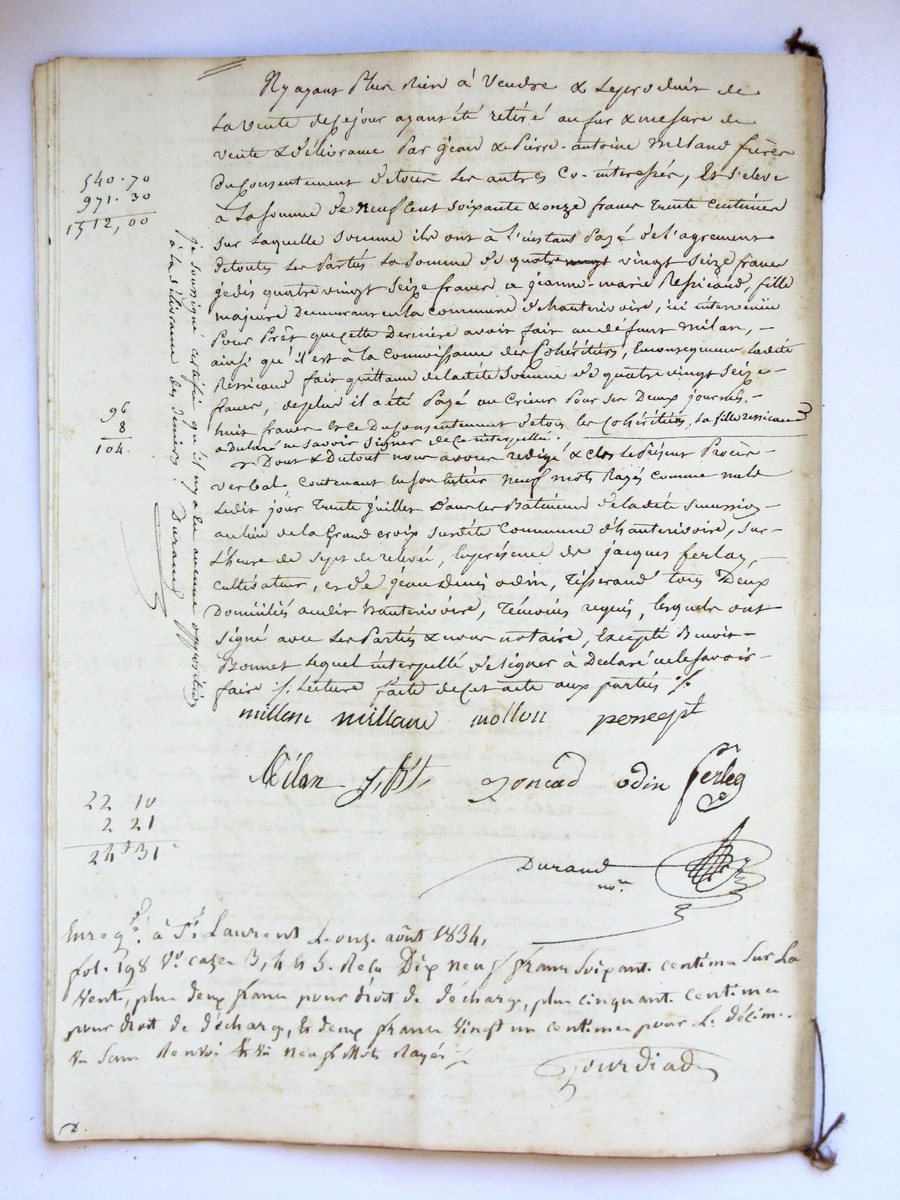 N'y ayant Plus Rien à Vendre & Leproduit de
La Vente decejour ayant été retiré aufur & mesure de
vente & délivrance Par jean & Pierre-antoine Miland frères
Du Consentement detous Les autres Co-interessés, Et s'eleve
à La Somme de Neuf Cent Soixante & onze francs Trente Centimes
Sur Laquelle Somme ils ont à l'instant Payé de l'agrement
detoutes Les Parties La Somme de quatre vingt vingt Seize francs
je dis quatre vingt Seize francs a jeanne-marie Ressicaud, fille
majeure demeurant en la commune d'hauterivoire, ici intervenue
Pour Prêt que cette Derniere avoit fait au defunt Milan, -
ainsi qu'il est à la Connoissance des Cohéritiers, Enconsequence Ladite
Ressicaud fait quittance deladite Somme de quatre vingt Seize -
francs, deplus il a été Payé au Crieur Pour Ses Deux journées -
huit francs & Ce Du Consentement detous les Cohéritiers, La fille ressicaud
a declaré ne Savoir Signer de Ce interpellée.
Dont & Dutout nous avons redigé & Clos Le Présent Procès-
verbal Contenant En Son Entier Neuf Mots Rayés Comme nuls
Ledit jour Trente juillet Dans Les Batimens de la dite Succession
au lieu de la Grand Croix Susdite Commune d'hauterivoire, Sur-
L'heure de Sept de relevée, En presence de jacques ferlay, -
Cultivateur, et de jean Denis odin, Tisserand tous Deux
Domiciliés audit hauterivoire, Témoins requis, Lesquels ont
Signé avec Les Parties & nous notaire, Excepté Benoit-
Bonnet Lequel interpellé de Signer à Declaré ne le Savoir -
faire ./. Lecture faite decet acte aux parties ./.
540.70
971.30
1512,00
je soussigné certifie qu'il n'y a eu aucune opposition
à la délivrance des deniers. Durand
96
8
104.
milland milland mollon
Milan joncad odin ferley
22 10
2 21
24 31
Durand
no.re
Enregé. à St. Laurent Le onze août 1834,
fol. 198 Vo. cazes 3, 4 & 5. Reçu Dix neuf francs Soixante centimes Sur La
Vente, plus deux francs pour droit de décharge, plus cinquante centimes
pour droit de décharge, & deux francs Vingt un centimes pour Le décime.
Vu Sans Renvoi & Vu Neuf Mots Rayés
Jourdiad